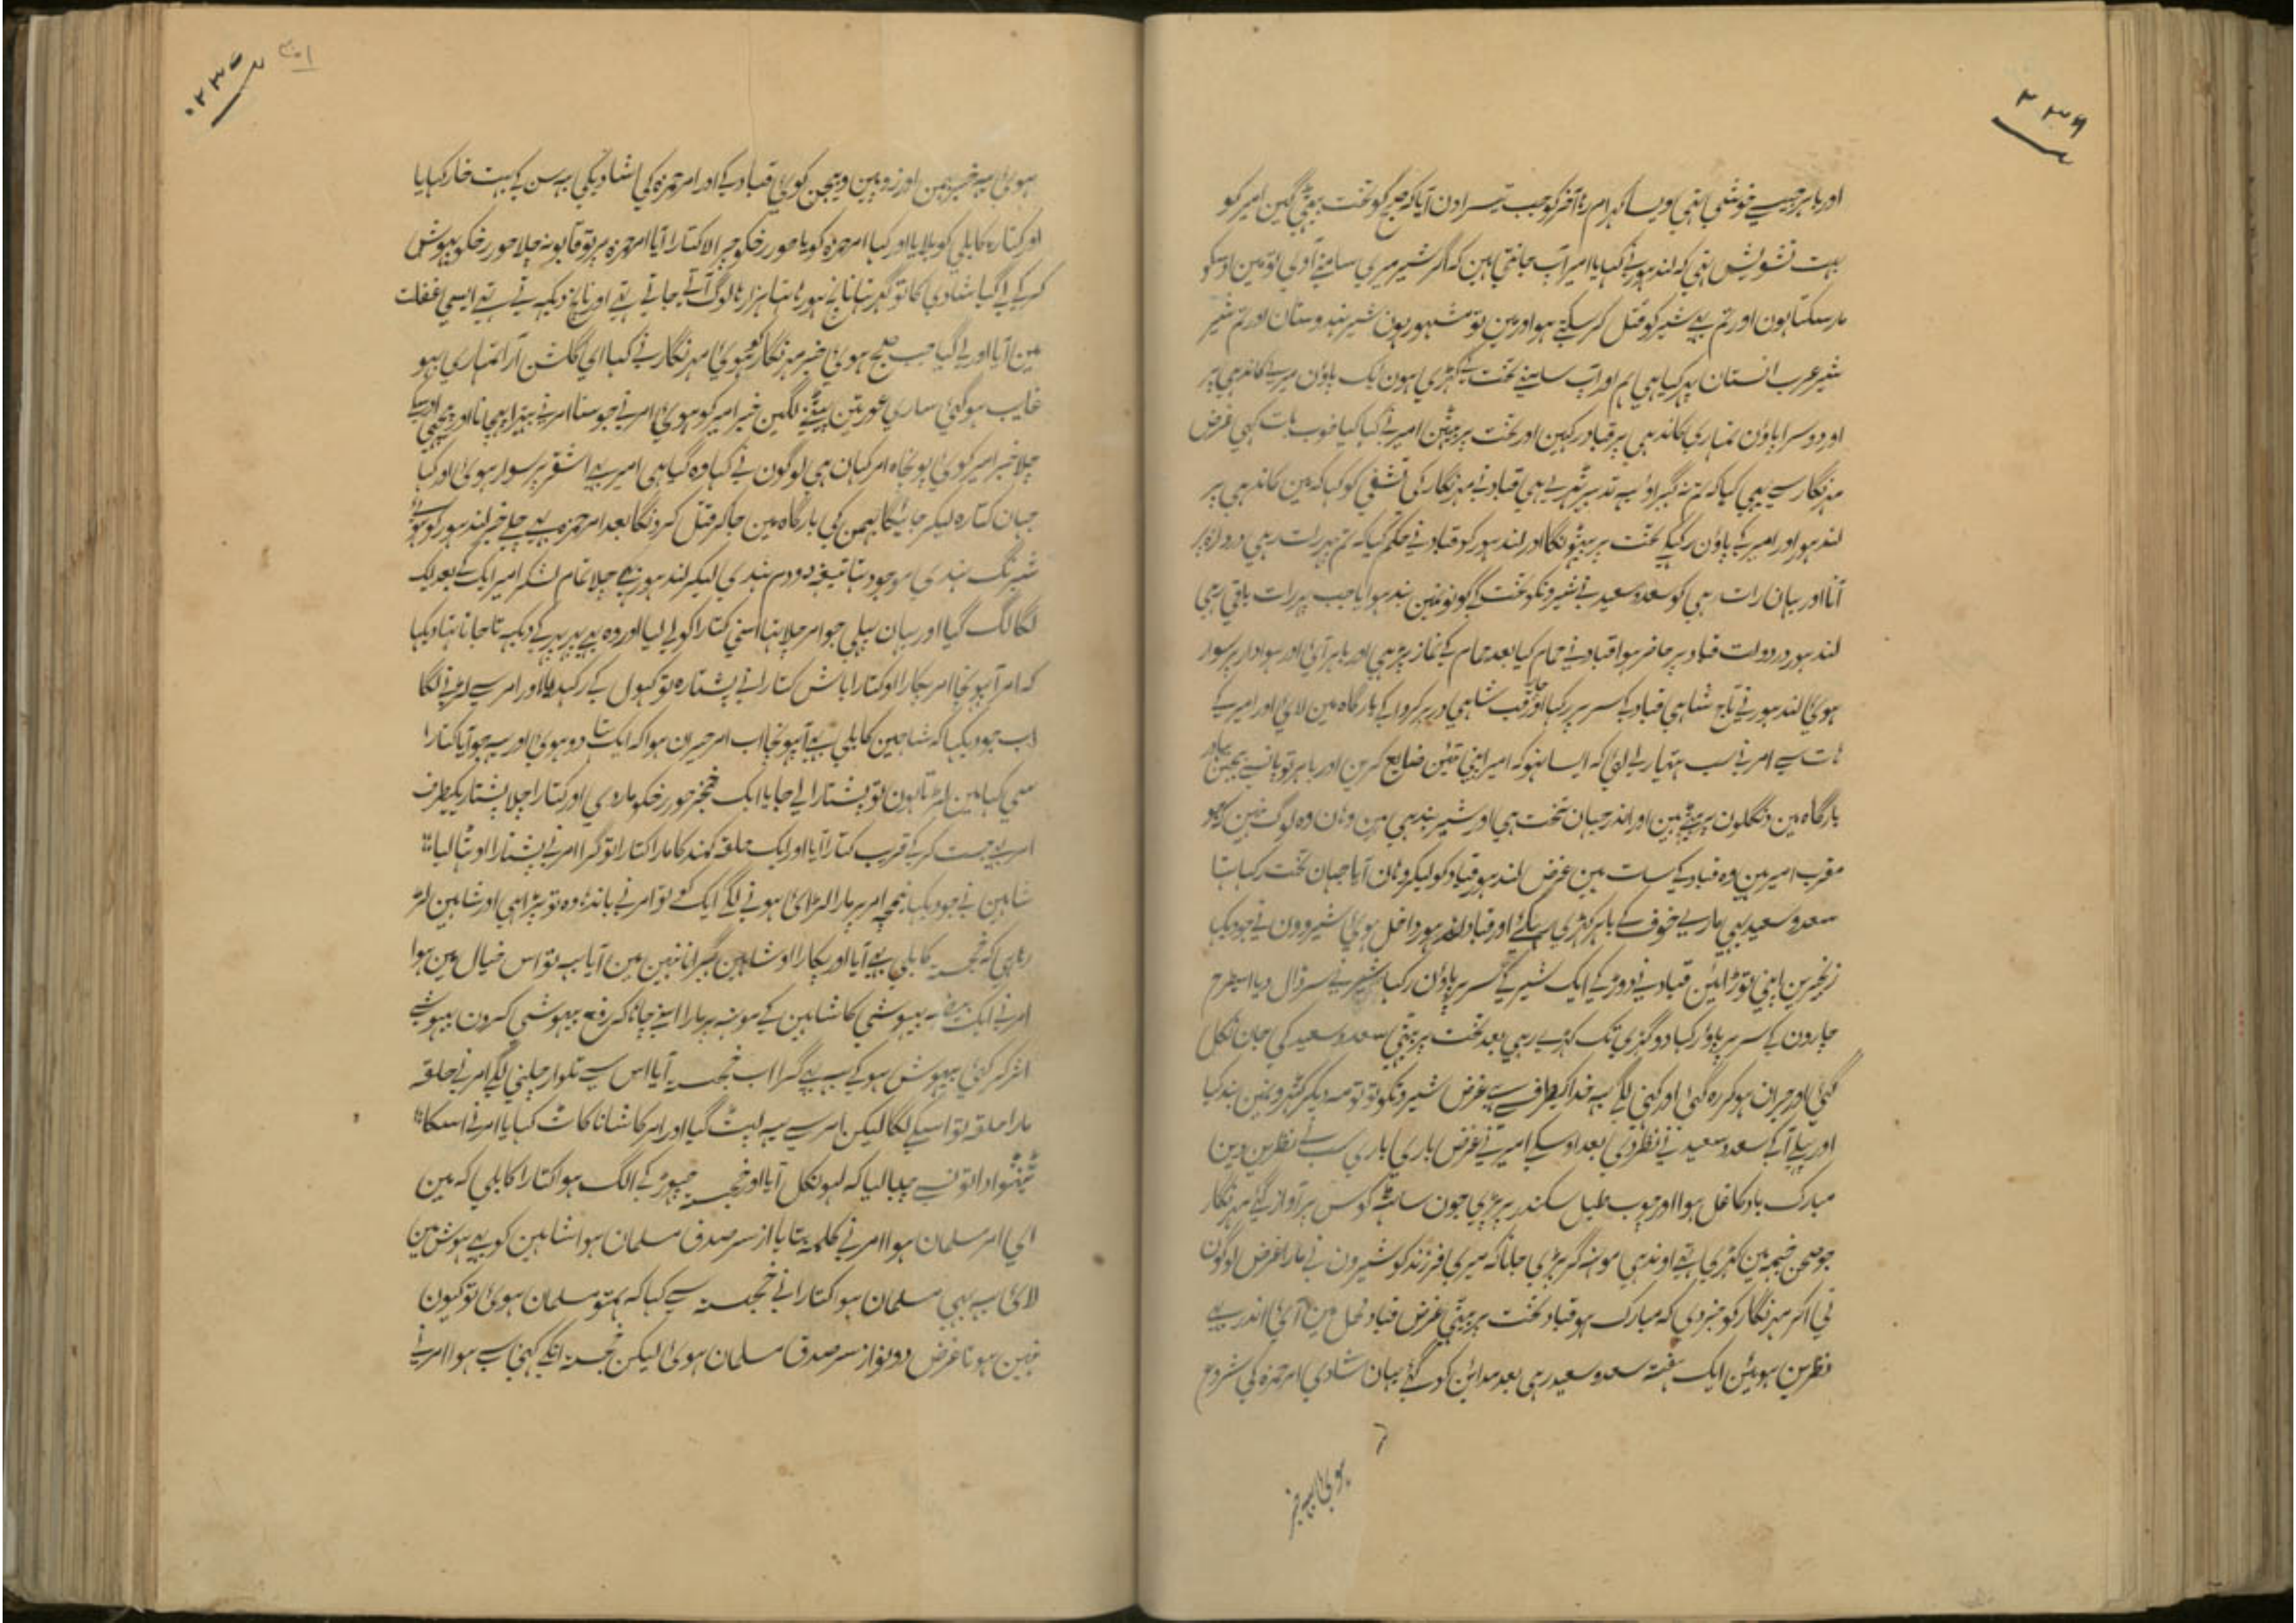 ۲۳۴
اور باہر جیسے خوشی تہی ویسا کہرام رہا آخر کو جب تیسرا دن آیا کہ صبح کو تخت بیٹہی گین امیر کو
بہت تشویش تہی کہ لندہور نے کہا یا امیر آپ جانتی ہین کہ اگر شیر میری سامنے آوی تو مین اوسکو
مار سکتا ہون اور تم بہی شیر کو قتل کر سکتے ہو اور مین تو مشہور ہون شیر ہندوستان اور تم شیر
شیر عرب انستان پہر کیا ہی ہم اور آپ سامنے تخت کے کہڑی ہون ایک پاؤن میرے کاندہی پر
اور دوسرا پاؤن تمہاری کاندہی پر قباد رکہین اور تخت پر بیٹہین امیر نے کہا کیا خوب بات کہی غرض
مہرنگار سے بہی کہا کہ تم نہ گہبراؤ یہ تدبیر ٹہری ہی قباد نے مہرنگار کی تشفی کو کہا کہ مین کاندہی پر
لندہور اور امیر کے پاؤن رکہکے تخت پر بیٹہونگا اور لندہور کو قباد نے حکم کیا کہ تم پہر رات رہی دروازہ پر
آنا اور یہان رات رہی کو سعد و سعید نے شیرونکو تخت کے گونونمین بندہوایا جب پہر رات باقی رہی
لندہور در دولت قباد پر حاضر ہوا قباد نے حمام کیا بعد حمام کے نماز پڑہی اور باہر آئی اور ہوادار پر سوار
ہوئی لندہور نے تاج شاہی قباد کے سر پر رکہا اور قب شاہی در بر کروا کے بارگاہ مین لائی اور امیر کے
ہات سے امر نے سب ہتیار لے لئی کہ ایسا نہو کہ امیر اپنی تئین ضایع کرین اور باہر تو پانسے پہچین
بارگاہ مین دنگلون پر بیٹہے ہین اور اندر جہان تخت ہی اور شیر بندہی ہین وہان وہ لوگ ہین کہ جو
مقرب امیر ہین وہ قباد کے سات ہین غرض لندہور قباد کو لیکر وہان آیا جہان تخت رکہا تہا
سعد و سعید بہی مارے خوف کے باہر کہڑی رہگئے اور قباد اور لندہور داخل ہوئی شیرورون نے جو دیکہا
زنجیرین اپنی توڑائین قباد نے دوڑ کے ایک شیر کے سر پر پاؤن رکہا شیر نے سر ڈال دیا اسیطرح
چارون کے سر پر پاؤن رکہا دو گہڑی تک کہڑے رہی بعد تخت پر بیٹہی سعد و سعید کی جان نکل
گئی اور حیران ہوکر رہ گئی اور کہنی لگے یہ خدا کیطرف سے ہے غرض شیرونکو تو توسہ دیکر کٹہرونمین بند کیا
اور پہلے آکے سعد و سعید نے نظر دی بعد اوسکے امیر نے غرض باری باری سب نے نظرین دین
مبارک باد کا غل ہوا اور چوب طبل سکندر پر پڑی جون ساٹہے کوس پر آواز گئے مہرنگار
جو صحن خیمہ مین کہڑی تہے اوندہی مونہہ گر پڑی جانا کہ میری فرزند کو شیرون نے مارا غرض لوگون
نی اکر مہرنگار کو خبر دی کہ مبارک ہو قباد تخت پر بیٹہی غرض قباد محل مین آئی اندر سے
نظرین ہوئین ایک ہفتہ سعد و سعید رہی بعد مداین کو گئے یہان شادی امر حمزہ کی شروع
ہوئی یہ خبر
۲۳۵
ہوئی یہ خبر بہمن اور زوبین و بیجن کو ہی قباد کے اور امر حمزہ کی شادیکی یہ سن کے بہت خار کہایا
اور کتارہ کابلی کو بلایا اور کہا امر حمزہ کو یا حور رخکو چرا لا کتارا آیا امر حمزہ پر تو قابو نہ چلا حور رخکو بیہوش
کر کے لے گیا شادی کا تو گہر تہا ناچ ہو رہا تہا ہزارہا لوگ آتے جاتے تہے اور ناچ دیکہہ تے تہے ایسی غفلت
مین آیا اور لے گیا جب صبح ہوئی خبر مہرنگار کو ہوئی مہرنگار نے کہا ای گلشن آرا تمہاری بہو
غایب ہو گئی ساری عورتین پیٹنے لگین خبر امیر کو ہوئی امر نے جو سنا امر نے پتیرا پہچانا اور پیچہی اوسکے
چلا خبر امیر کو ہی پونچا امر کہان ہی لوگون نے کہا وہ گیا ہی امیر بہی اشقر پر سوار ہوئی اور کہا
جہان کتارہ لیکر جائیگا بہمن کی بارگاہ مین جاکر قتل کرونگا بعد امر حمزہ بہی چلے خبر لندہور کو ہوئی
شبرنگ ہندی موجود تہا تیغہ دودم ہندی لیکر لندہور بہی چلا تمام لشکر امیر ایک کے بعد ایک
لگا لگ گیا اور یہان پہلی جو امر چلا تہا اسنی کتارا کو لے لیا اور وہ بہی پہر پہر کے دیکہہ تا جاتا تہا دیکہا
کہ امر آ پہونچا امر پکارا او کتارا باش کتارا نے پشتارہ تو کہول کے رکہدیا اور امر سے لڑنے لگا
اب جو دیکہا کہ شاہین کابلی بہی آ پہونچا اب امر حیران ہوا کہ ایک تہا دو ہوئی اور یہ جو آیا کتارا
سی کہا مین لڑتا ہون تو پشتارا لے جا یا ایک خنجر حور رخکو مار دی اور کتارا چلا پشتاریکیطرف
امر بہی جست کر کے قریب کتارا آیا اور ایک حلقہ کمند کا مارا کتارا تو گرا امر نے پشتارا اوٹہا لیا
شاہین نے جو دیکہا نیمچہ امر پر مارا لڑائی ہونے لگے ایک کو تو امر نے باندہا وہ تو پڑا ہی اور شاہین لڑ
رہا ہی کہ خجستہ کابلی بہی آیا اور پکارا او شاہین گہبرانا نہین مین آیا یہ تو اس خیال مین ہوا
امر نے ایک بیضہ بیہوشی کا شاہین کے مونہہ پر مارا اسنے چاہا کہ رفع بیہوشی کرون بیہوشے
اثر کر گئی بیہوش ہو کے یہ بہی گرا اب خجستہ آیا اس سے تلوار چلنی لگے امر نے حلقہ
مارا حلقہ تو اسکے لگا لیکن امر سے یہ لپٹ گیا اور امر کا شانا کاٹ کہایا امر نے اسکا
ٹینٹوا دانتون سے چبا لیا کہ لہو نکل آیا اور خجستہ چہوڑ کے الگ ہوا کتارا کابلی کہ مین
ای امر مسلمان ہوا امر نے کلمہ بتایا از سر صدق مسلمان ہوا شاہین کو بہی ہوش مین
لائی یہ بہی مسلمان ہوا کتارا نے خجستہ سے کہا کہ ہمتو مسلمان ہوئی تو کیون
نہین ہوتا غرض دونو از سر صدق مسلمان ہوئی لیکن خجستہ انکے کہنی سے ہوا امر نے